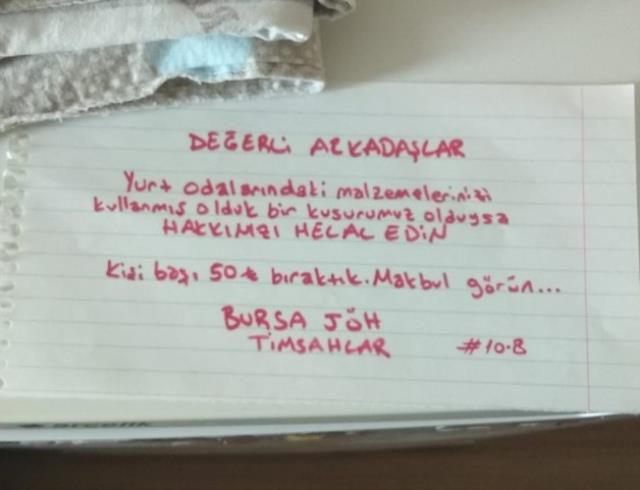 DEĞERLİ ARKADAŞLAR
Yurt odalarındaki malzemelerinizi
kullanmış olduk bir kusurumuz olduysa
HAKKIMIZI HELAL EDİN
Kişi başı 50₺ bıraktık. Makbul görün...
BURSA JÖH
TİMSAHLAR #10-B
arçelik